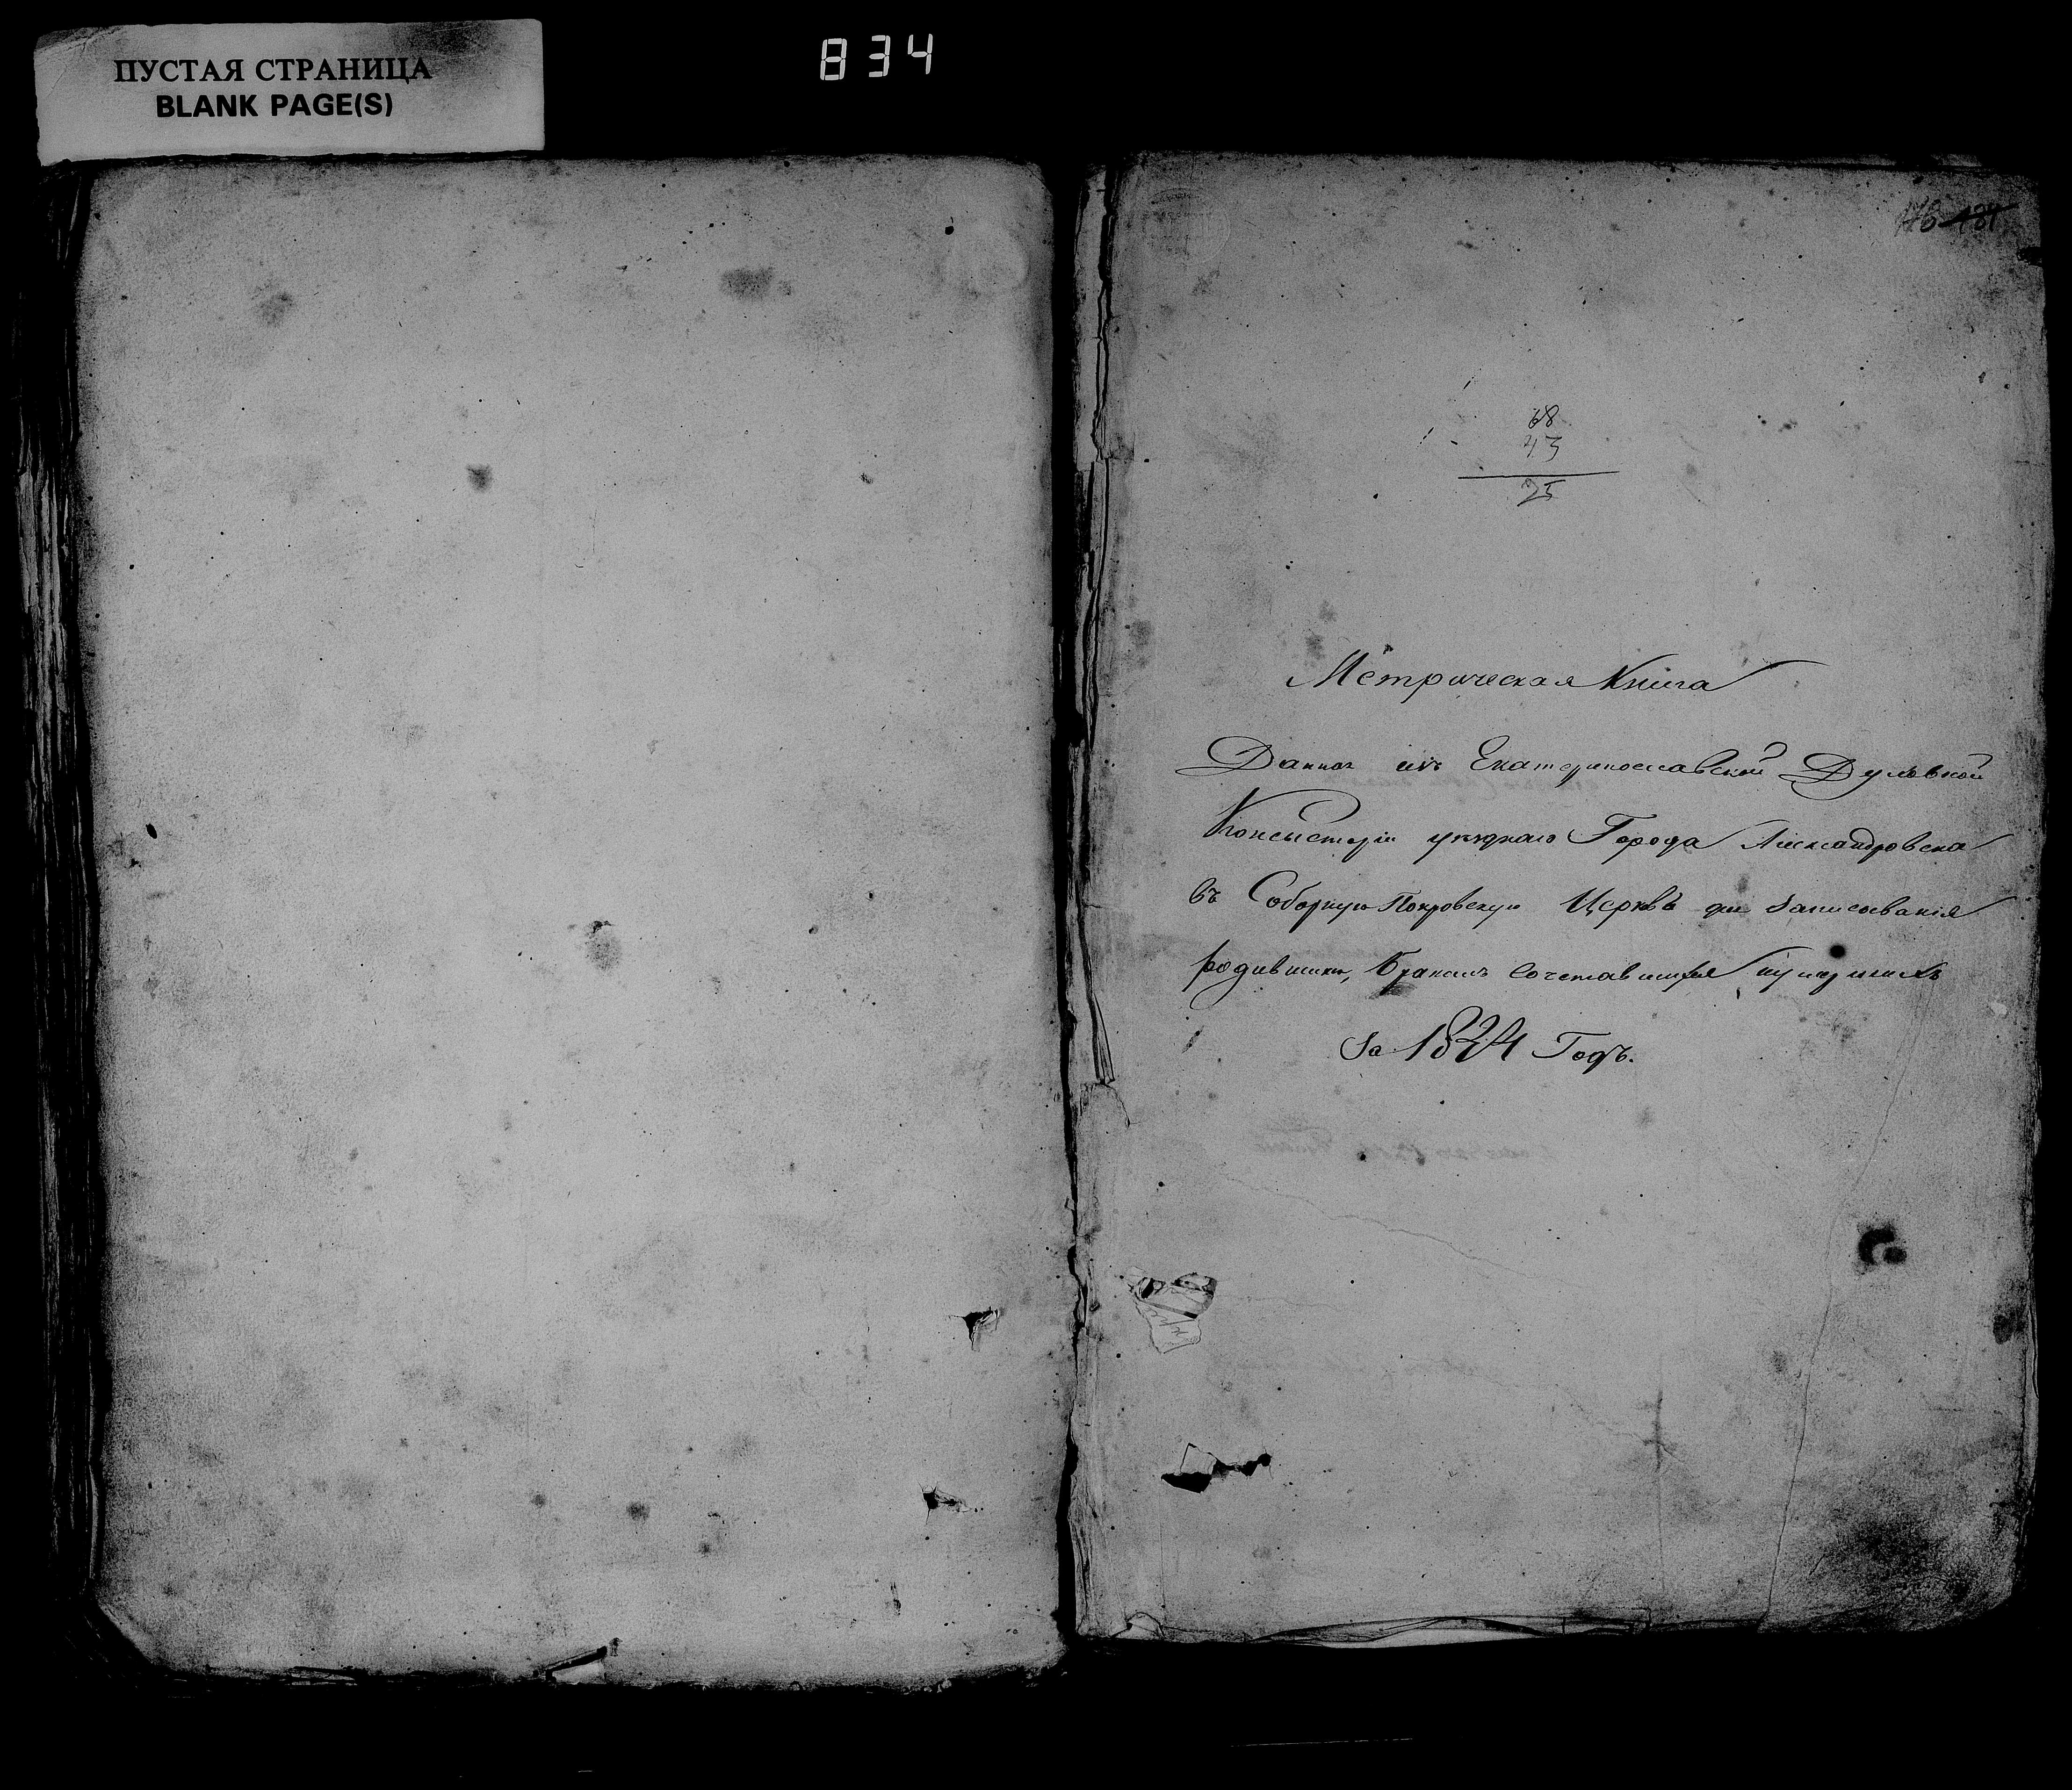 ПУСТАЯ СТРАНИЦА
BLANK PAGE(S)
834
68
43
25
Метрическая Книга
Данная изъ Екатеринославской Духовной
Консисторіи уезднаго Города Александровска
въ Соборную Покровскую Церквь для записыванія
родившихъ, бракомъ сочетавшихся и умершихъ
За 1824 Годъ.